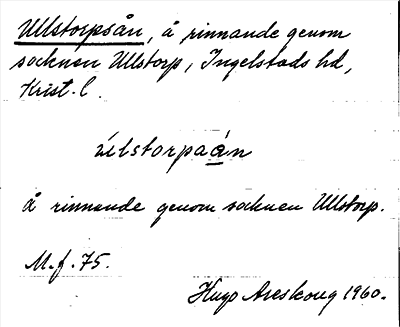 Ullstorpsån, å rinnande genom
socknen Ullstorp, Ingelstads hd,
Krist. l.
úlstorpaán
å rinnande genom socknen Ullstorp.
M.f. 75.
Hugo Areskoug 1960.